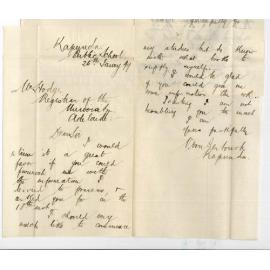 Kapunda
Public School
26th Jany 99
Mr Hodge
Registrar of the
University
Adelaide
Dear Sir
I would
it a great
favor if you could
furnish me with
the information I
desired to possess, &
asked you for on the
18th inst.
I should very
much like to commence
my studies but do not know
with what books to
supply myself.
I would be glad
if you could give me
some information
I am not
troubling you too much
I am
Yours faithfully
Kapunda